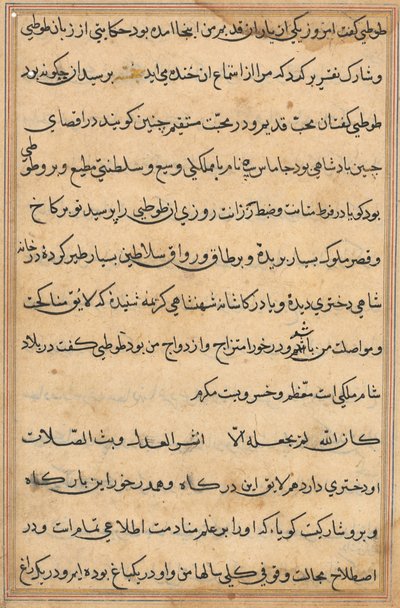 طوطی گفت امروز یکی از یاران قدیم من اینجا آمده بود حکایتی از زبان طوطی
و شارک تقریر کرد که مرا از استماع ان خنده می اید پرسید ان چگونه بود
طوطی گفت ان محب قدیم و در محبت مستقیم چنین گویند در اقصای
چین پادشاهی بود جاماس نام با مملکتی وسیع و سلطنتی مطیع و برو طوطی
بود گویا در فرط متانت و ضبط رزانت روزی از طوطی پرسید تو بر کاخ
و قصر ملوک بسیار پریدهٔ و بر طاق و رواق سلاطین بسیار طیر کردهٔ در خانه
شاهی دختری دیدهٔ و یا در کاشانه شهنشاهی کریمهٔ شنیدهٔ که لایق مناکحت
و مواصلت من باشد و در خور امتزاج و ازدواج من بود طوطی گفت در بلاد
شام ملکی است معظم و خسرویست مکرم
کان الله لم یجعله الا لنشر العدل و بث الصلات
او دختری دارد هم لایق این درگاه و هم در خور این بارگاه
و برو شارکیست گویا که او را بر علم منادمت اطلاعی تمام است و در
اصطلاح مجالست وقوفی کلی سالها من و او در یک باغ بوده ایم و در یک راغ